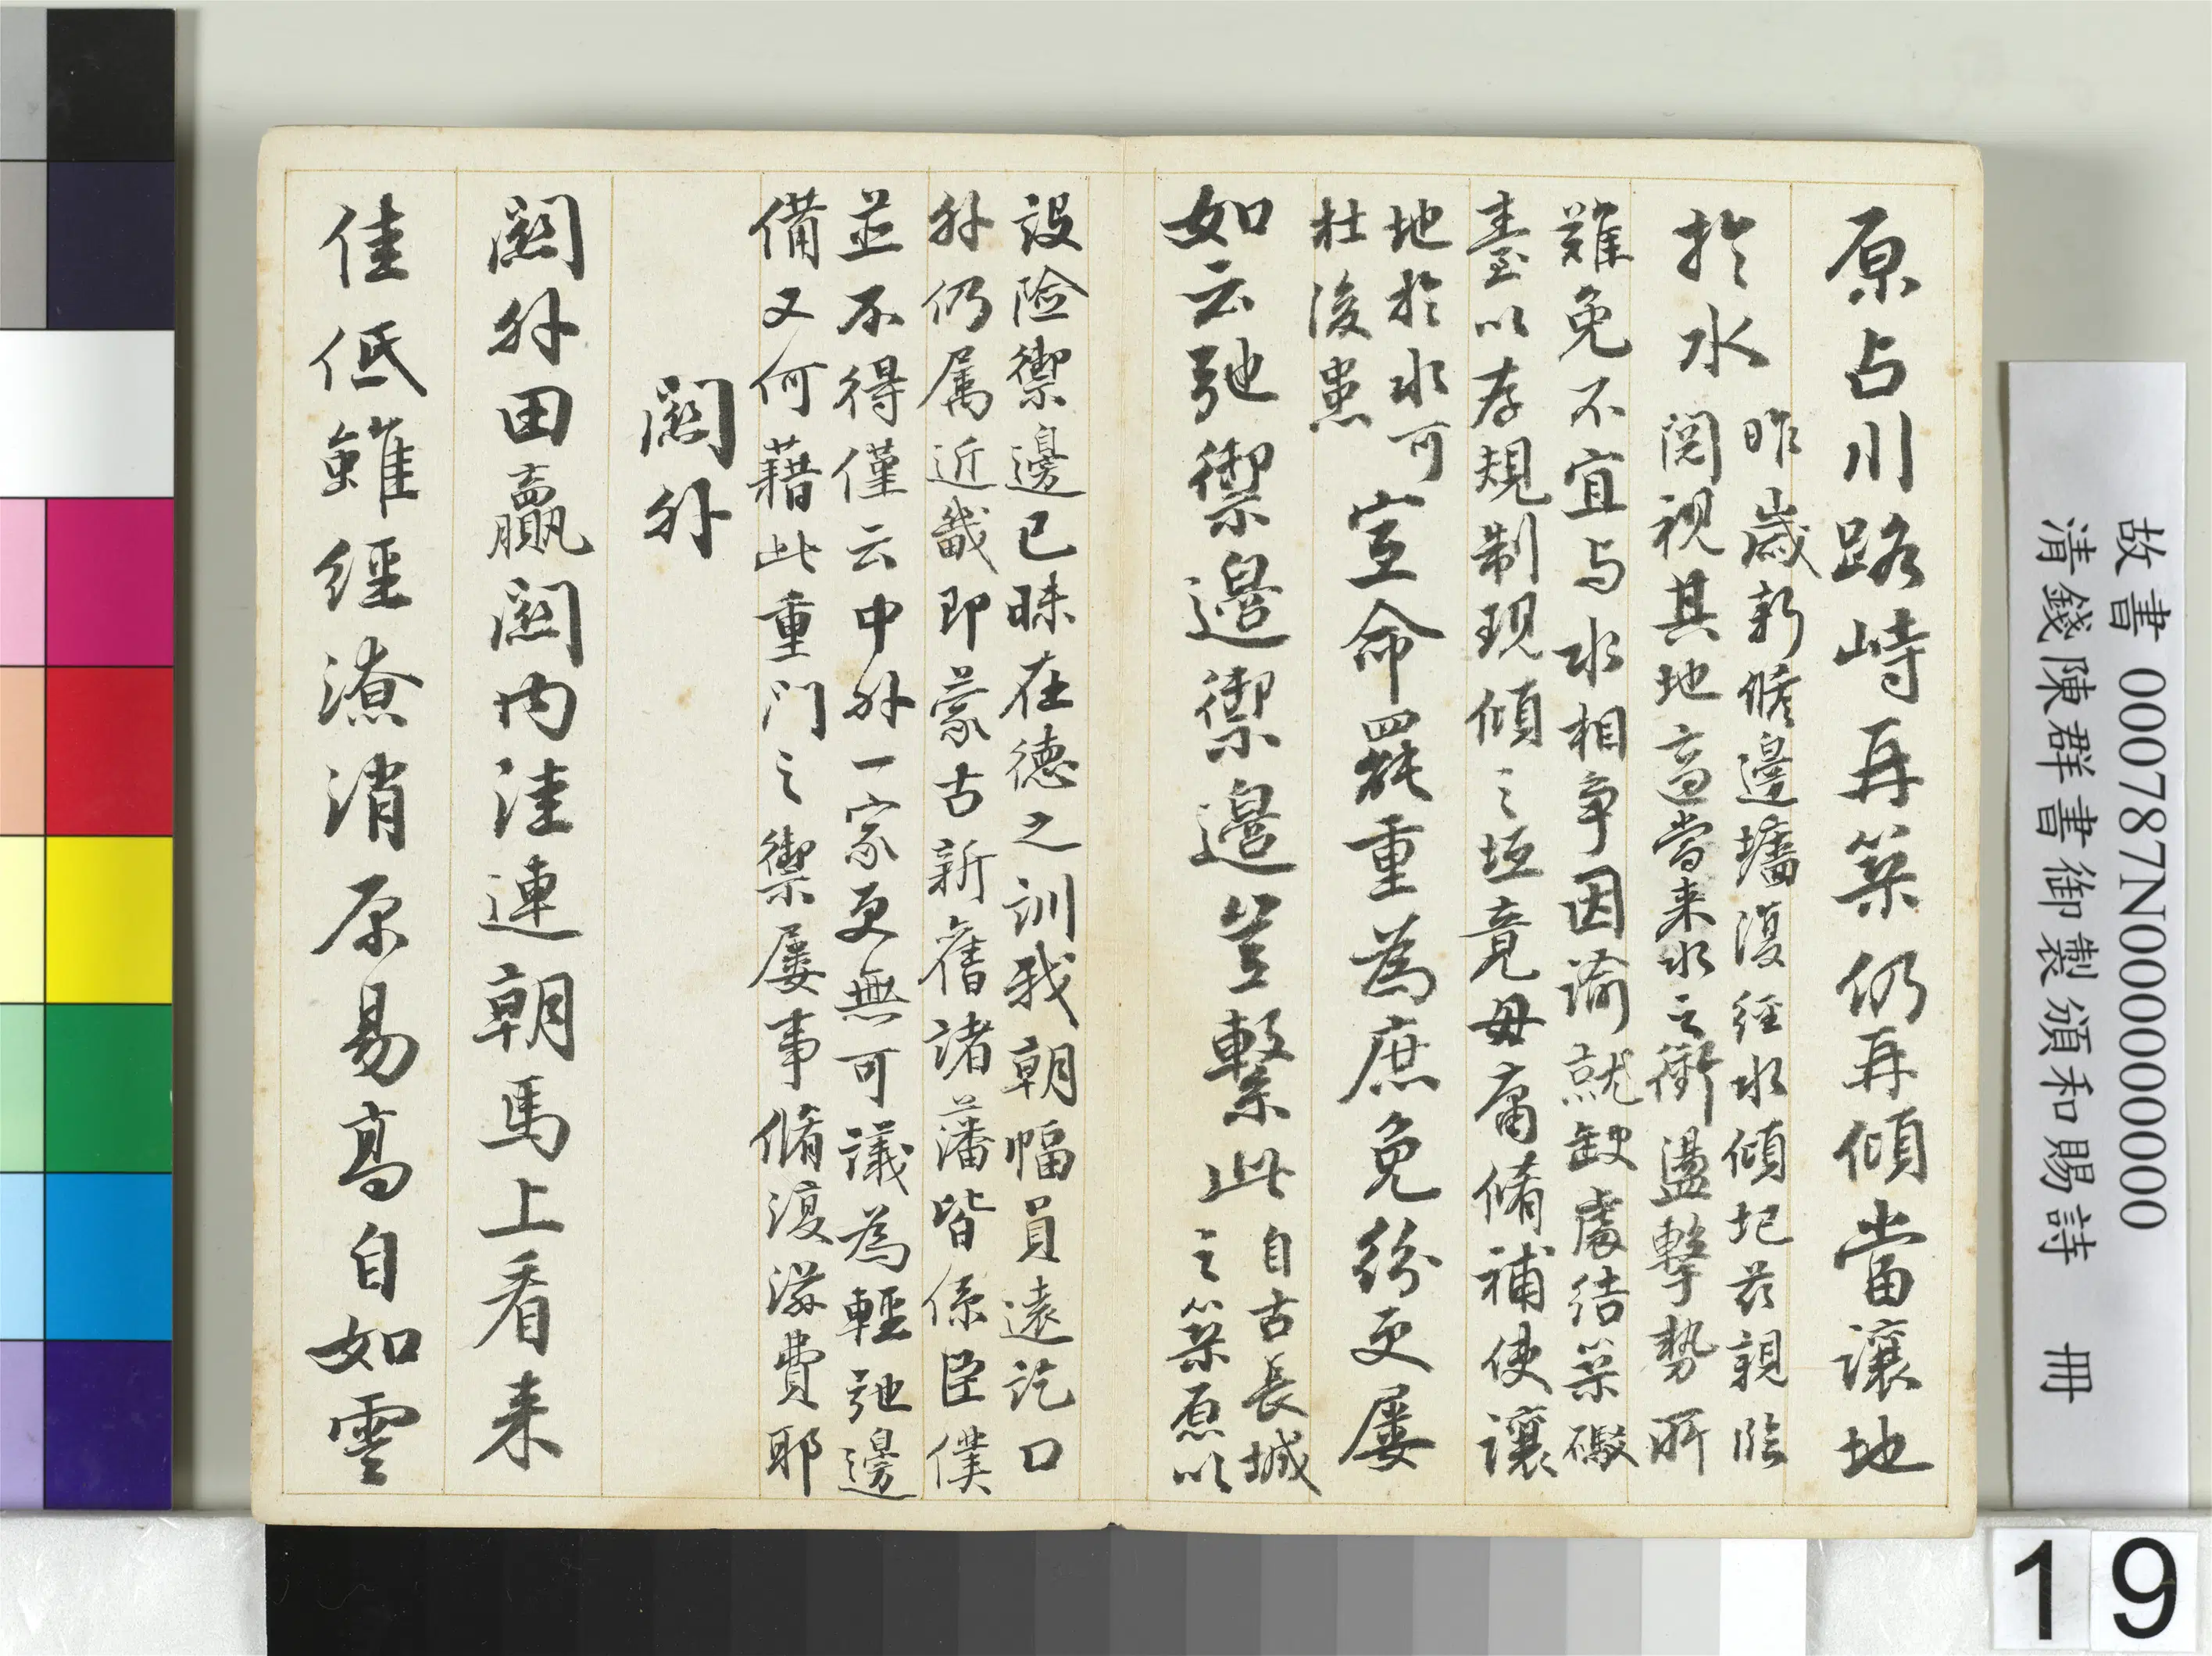 原占川路峙再築仍再傾當讓地
於水
昨歲新脩邊墻復經水傾圮茲親臨
閱視其地適當来水之衝盪擊勢所
難免不宜与水相爭因諭就缺處結築礮
臺以存規制現傾之垣竟毋庸脩補使讓
地於水可
杜後患
宣命罷重為庶免紛更屢
如云弛禦邊禦邊豈繫此
自古長城
之築原以
設險禦邊已昧在德之訓我朝幅員遠訖口
外仍属近畿即蒙古新舊諸藩皆係臣僕
並不得僅云中外一家更無可議為輕弛邊
備又何藉此重门之禦屢事脩復滋費耶
關外
關外田贏關内洼連朝馬上看来
佳低雖經潦消原易高自如雲
故書 000787N000000000
清錢陳群書御製頒和賜詩 冊
19